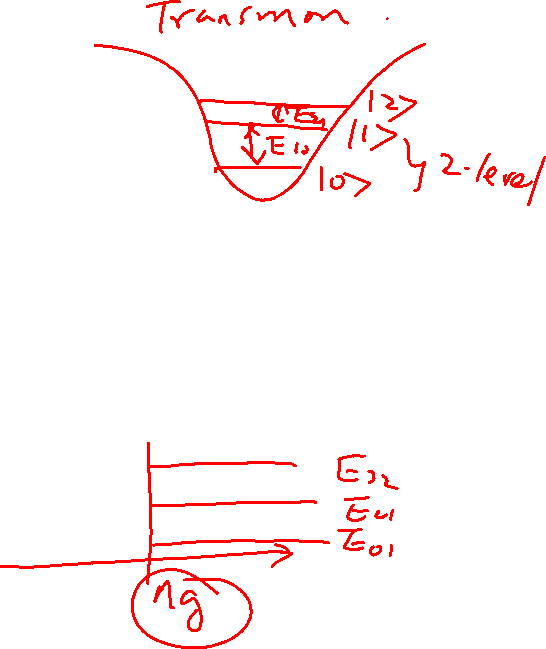 Transmon.
|2>
E21
|1>
E10
2-level
|0>
E32
E21
E01
ng